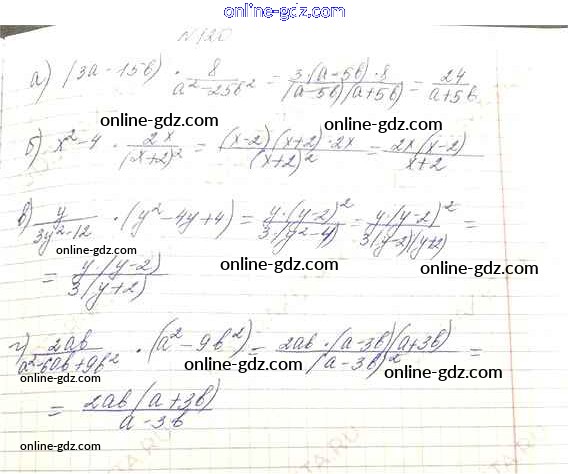 online-gdz.com
№120
а) (3a-15b) · 8/(a²-25b²) = 3·(a-5b)·8/((a-5b)(a+5b)) = 24/(a+5b)
online-gdz.com online-gdz.com
б) x²-4 · 2x/(x+2)² = (x-2)(x+2)·2x/(x+2)² = 2x(x-2)/(x+2)
в) y/(3y²-12) · (y²-4y+4) = y·(y-2)²/(3·(y²-4)) = y·(y-2)²/(3(y-2)(y+2)) =
online-gdz.com
= y(y-2)/(3(y+2))
online-gdz.com online-gdz.com
г) 2ab/(a²-6ab+9b²) · (a²-9b²) = 2ab·(a-3b)(a+3b)/(a-3b)² =
online-gdz.com online-gdz.com
= 2ab(a+3b)/(a-3b)
online-gdz.com
online-gdz.com online-gdz.com